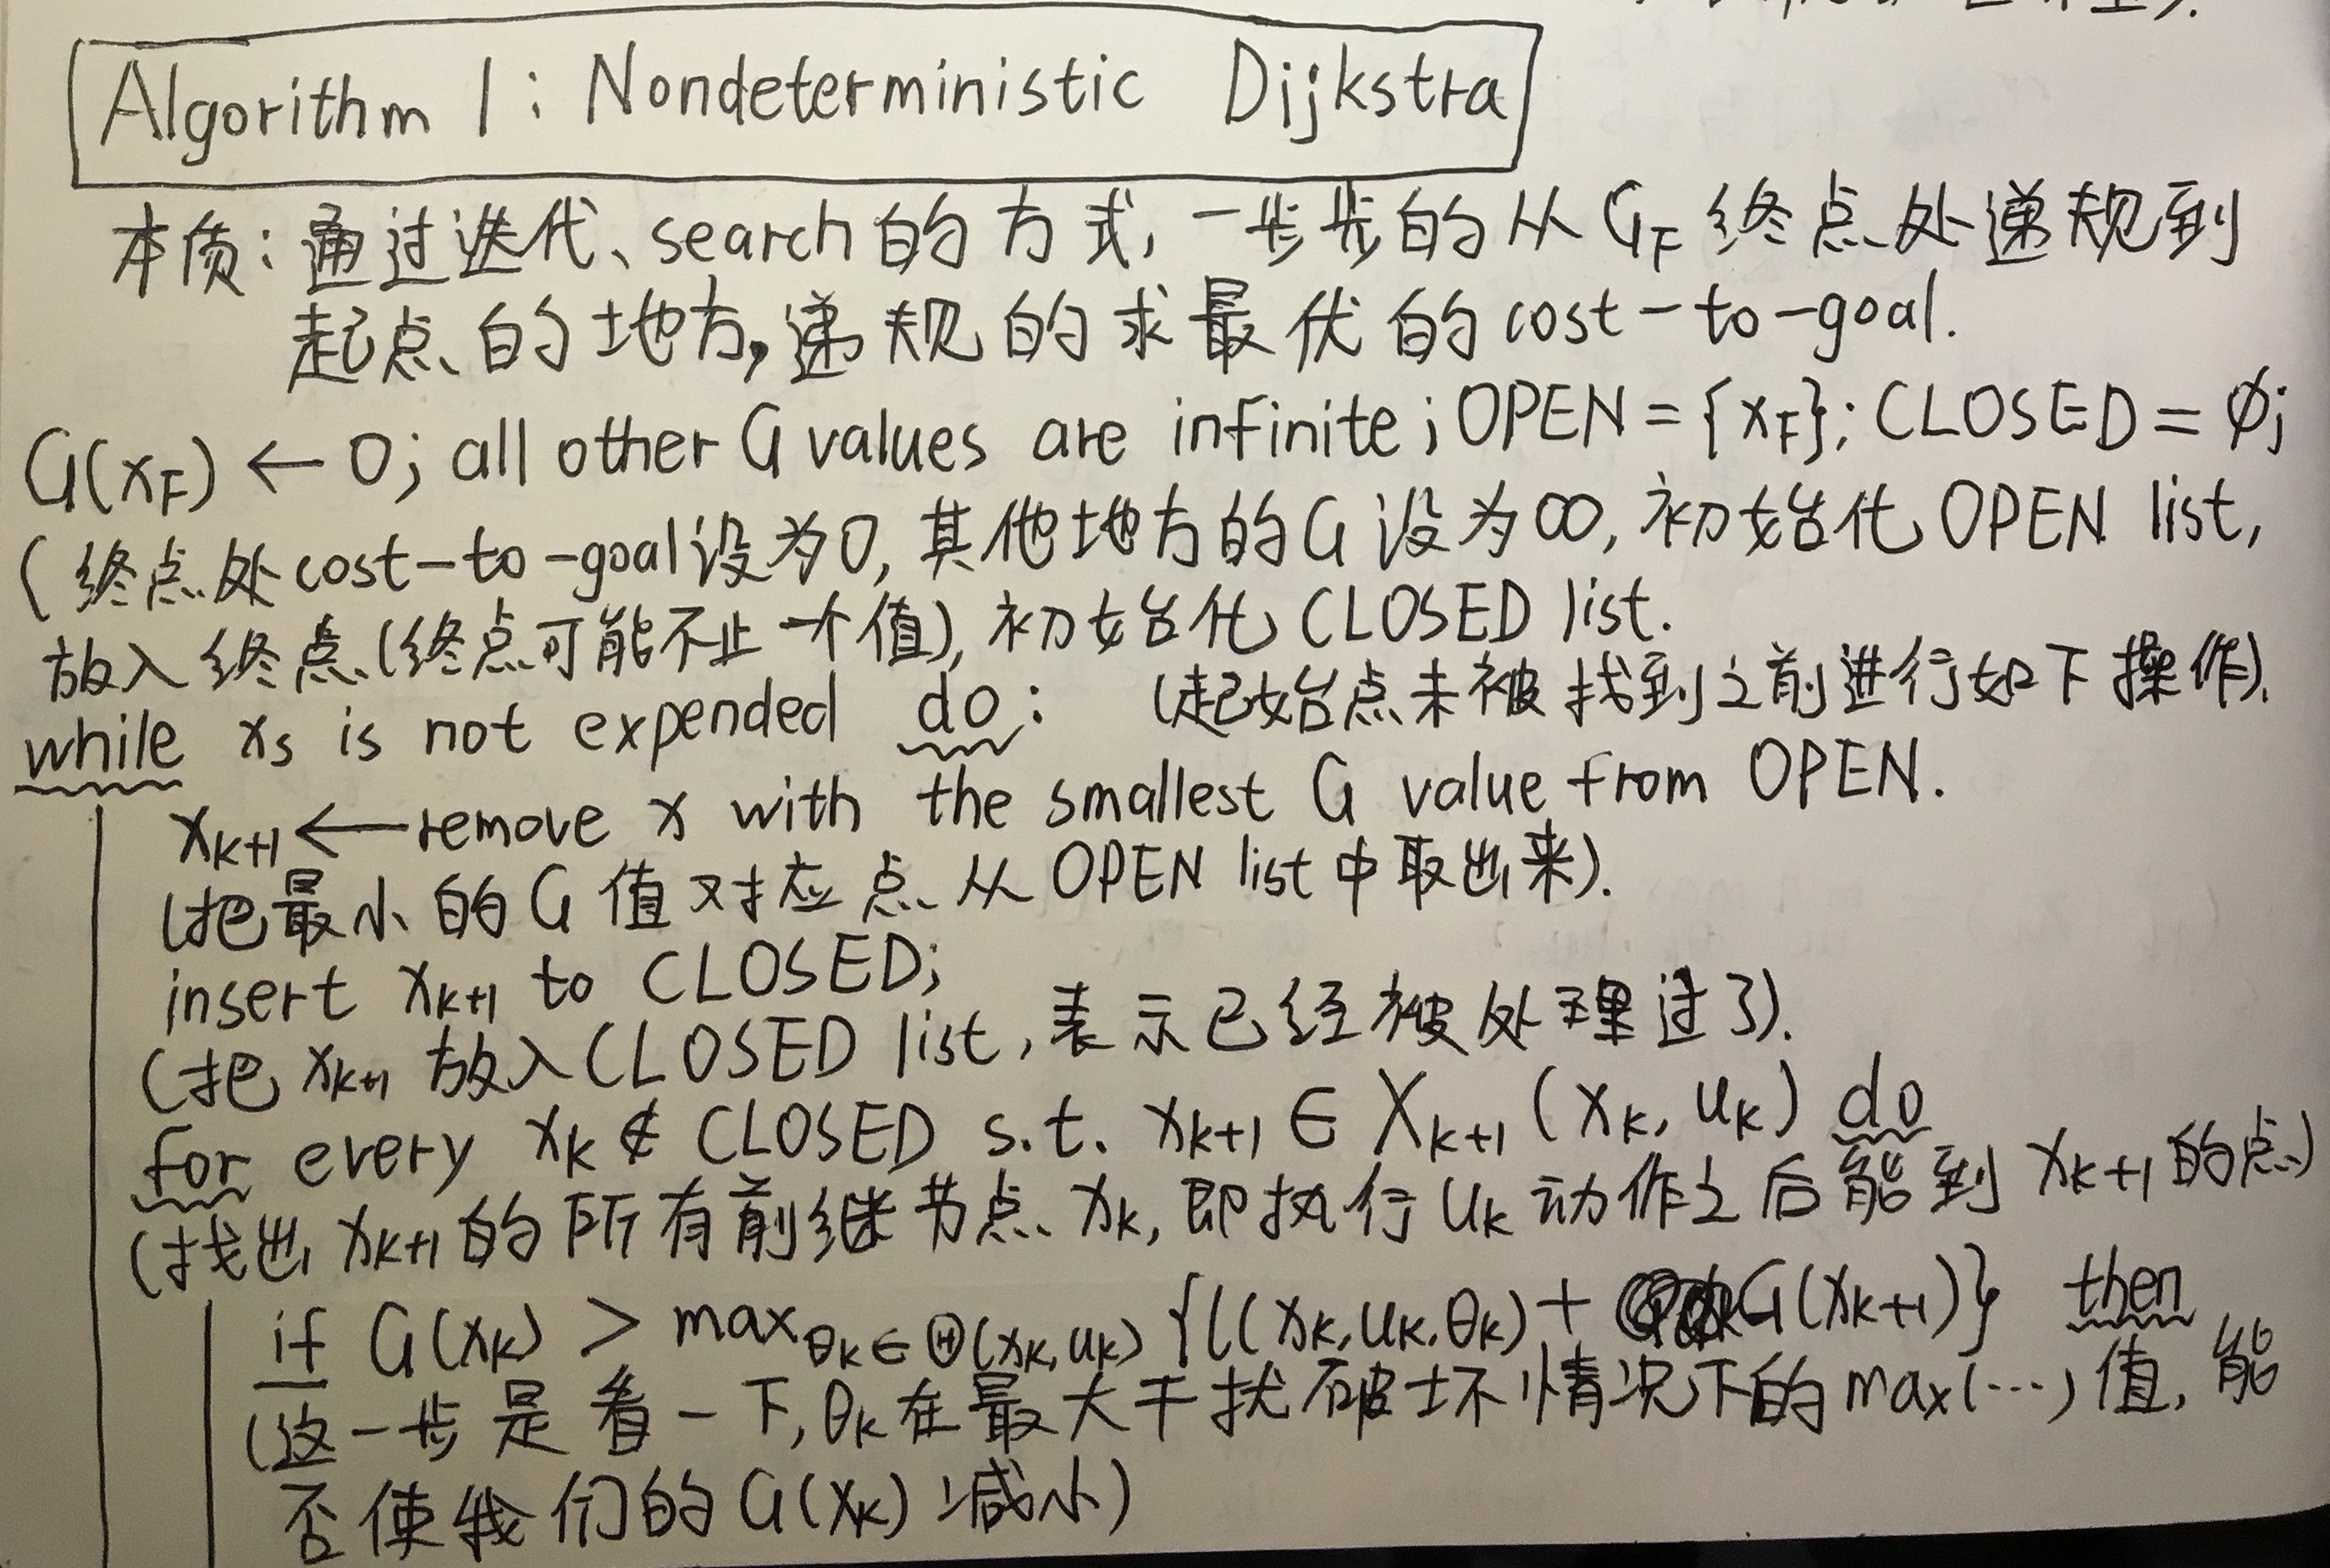 Algorithm 1: Nondeterministic Dijkstra
本质:通过迭代、search的方式,一步步的从G_F终点处递规到
起点的地方,递规的求最优的cost-to-goal.
G(x_F) ← 0; all other G values are infinite; OPEN = {x_F}; CLOSED = ∅;
(终点处cost-to-goal设为0,其他地方的G设为∞,初始化OPEN list,
放入终点(终点可能不止一个值),初始化CLOSED list.
while x_s is not expended do: (起始点未被找到之前进行如下操作).
x_{k+1} ← remove x with the smallest G value from OPEN.
(把最小的G值对应点从OPEN list中取出来).
insert x_{k+1} to CLOSED;
(把x_{k+1}放入CLOSED list,表示已经被处理过了).
for every x_k ∉ CLOSED s.t. x_{k+1} ∈ X_{k+1}(x_k, u_k) do
(找出x_{k+1}的所有前继节点x_k,即执行u_k动作之后能到x_{k+1}的点)
if G(x_k) > max_{θ_k∈Θ(x_k,u_k)} {l(x_k,u_k,θ_k) + G(x_{k+1})} then
(这一步是看一下,θ_k在最大干扰破坏情况下的max(…)值,能
否使我们的G(x_k)减小)